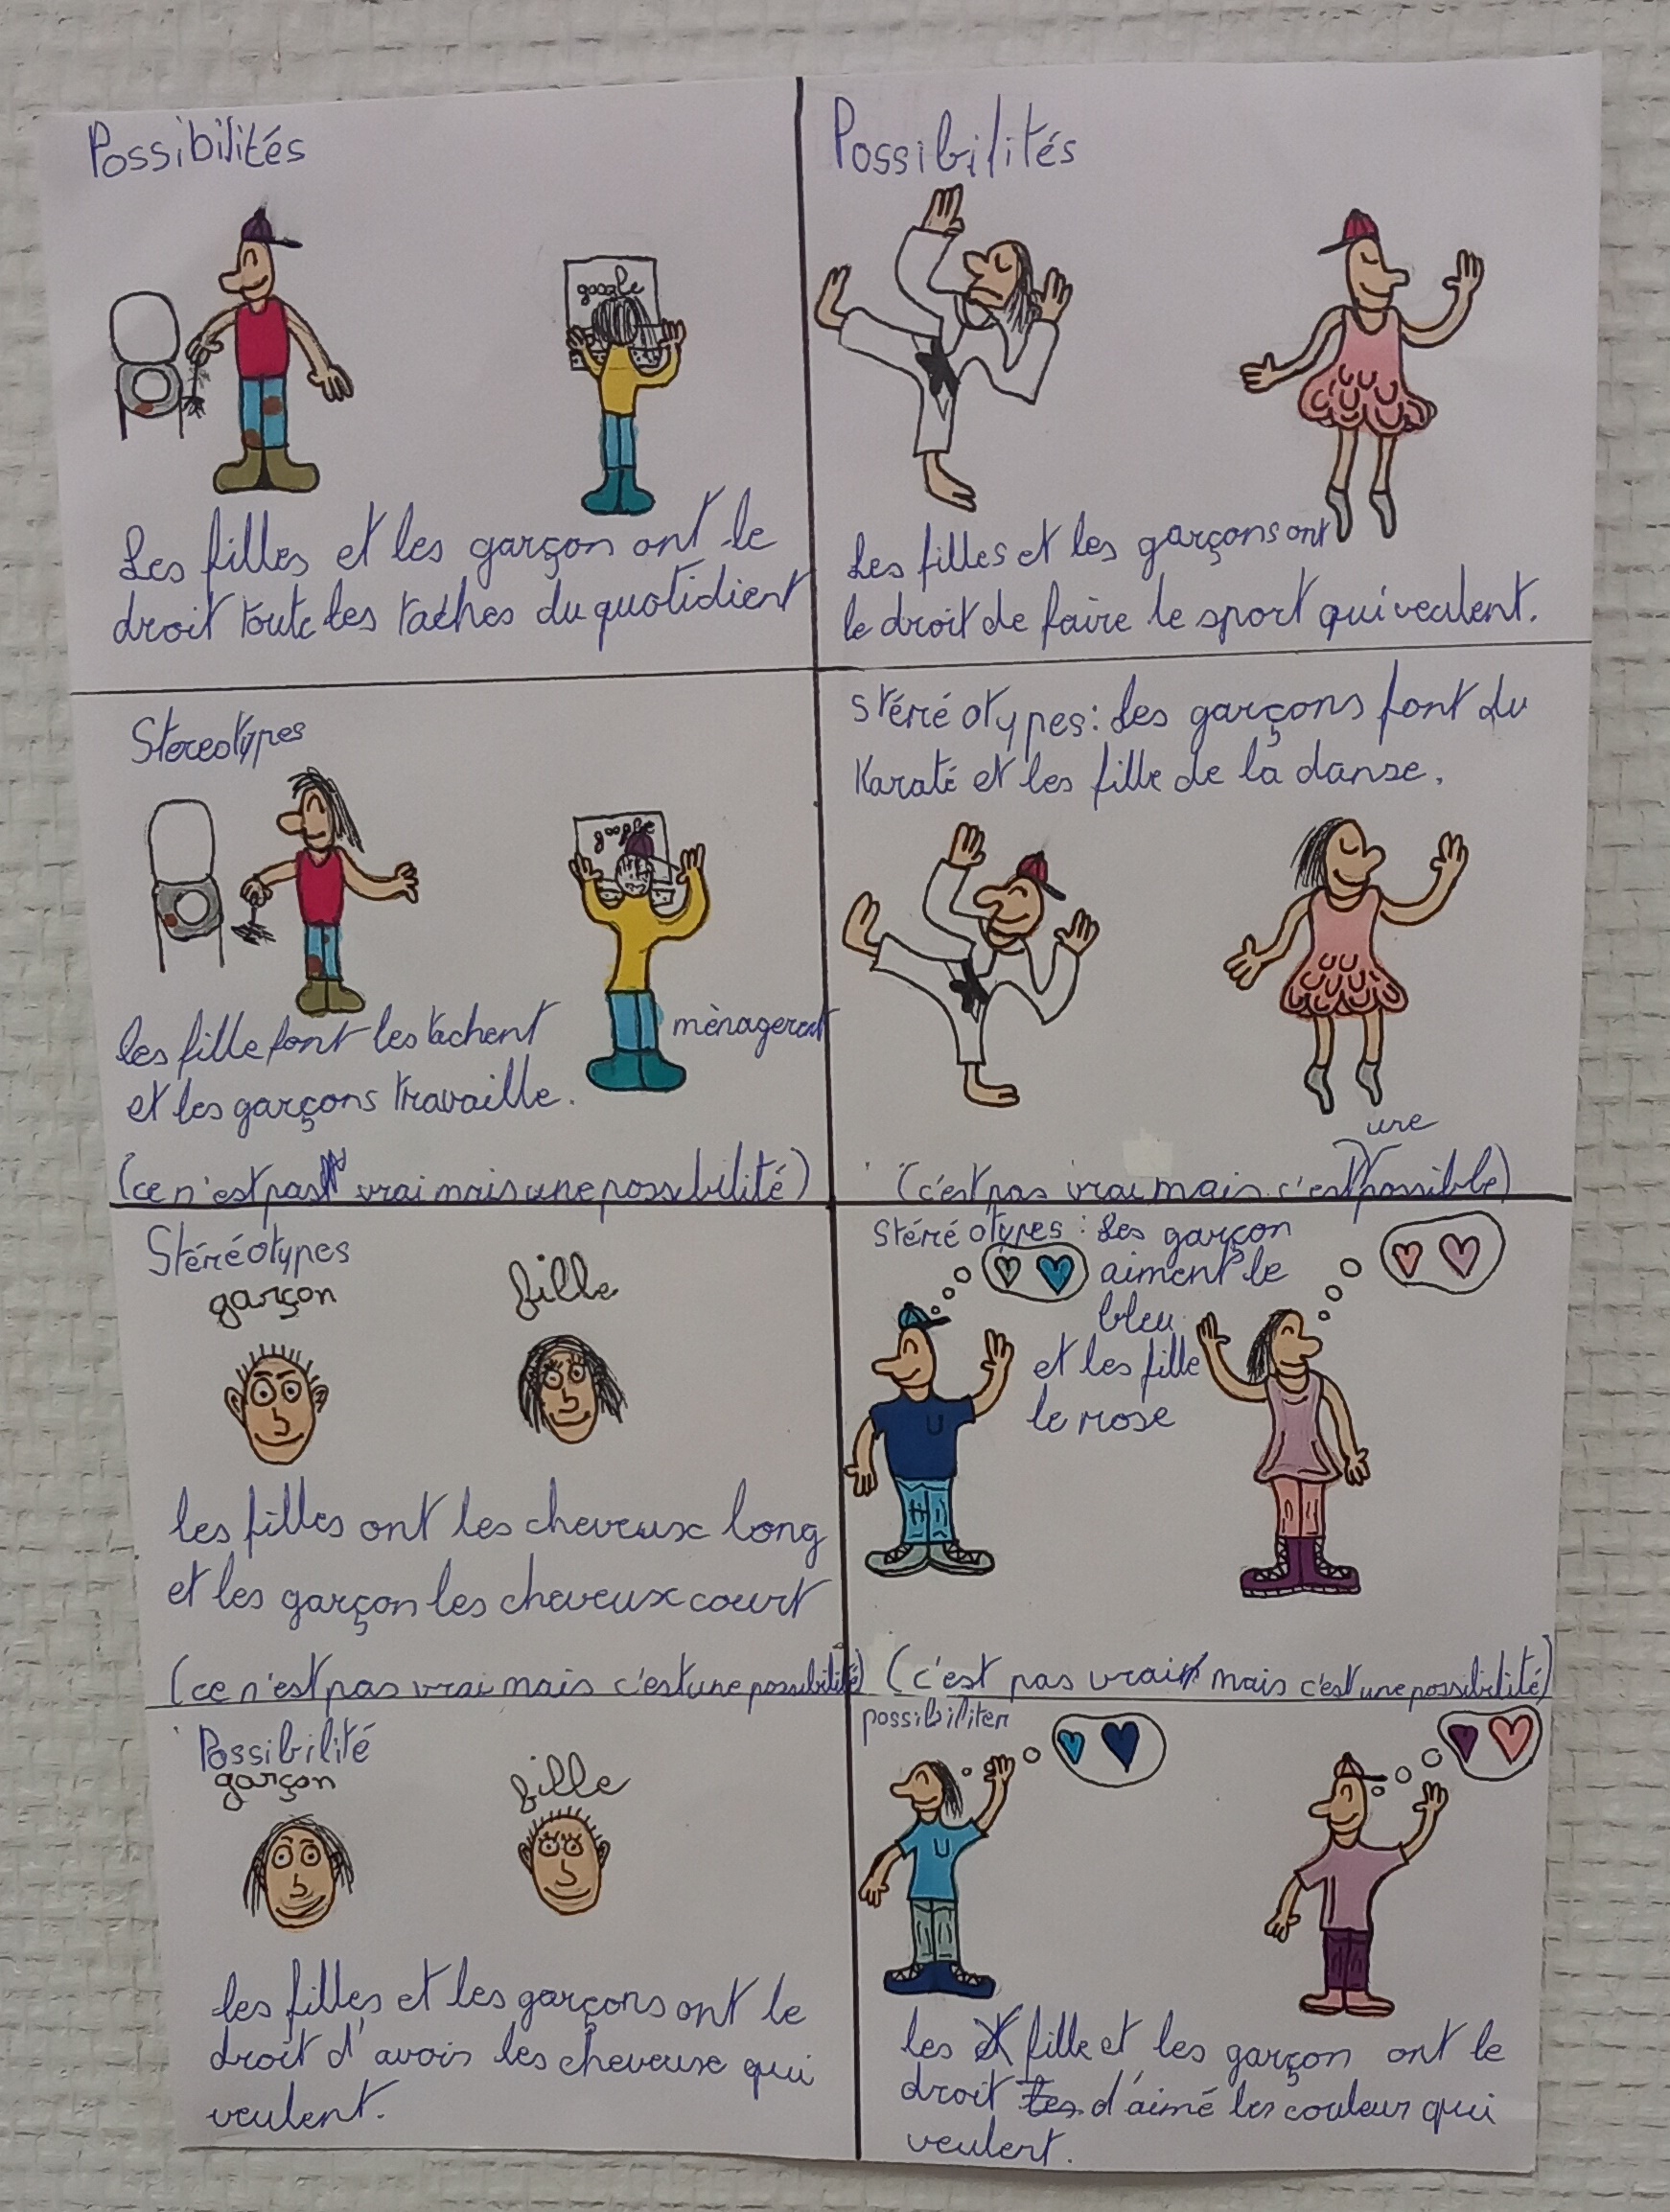 Possibilités
google
Les filles et les garçon ont le
droit toute les taches du quotidient
Possibilités
Les filles et les garçons ont
le droit de faire le sport qui veulent.
Stereotypes
google
les fille font les tachent
mènagerent
et les garçons travaille.
(ce n'est pas vrai mais une possibilité)
Stéréotypes: Les garçons font du
Karaté et les fille de la danse.
une
(c'est pas vrai mais c'est possible)
Stéréotypes
garçon
fille
les filles ont les cheveux long
et les garçon les cheveux court
(ce n'est pas vrai mais c'est une possibilité)
Stéréotypes: Les garçon
aiment le
bleu
et les fille
le rose
U
(c'est pas vrai mais c'est une possibilité)
Possibilité
garçon
fille
les filles et les garçons ont le
droit d'avoir les cheveuse qui
veulent.
possibiliter
U
les fille et les garçon ont le
droit les d'aimé les couleur qui
veulent.